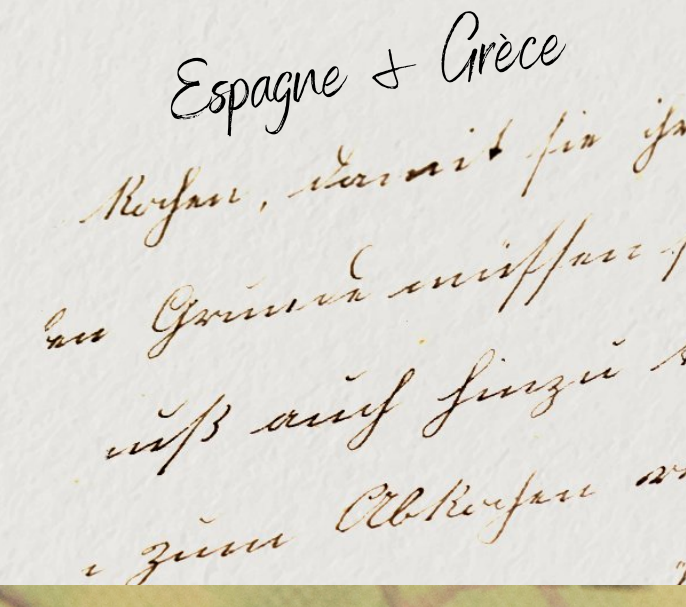 Espagne & Grèce
Kochen, damit sie ihr
en Grunde müssen
muß auch hinzu
zum Abkochen